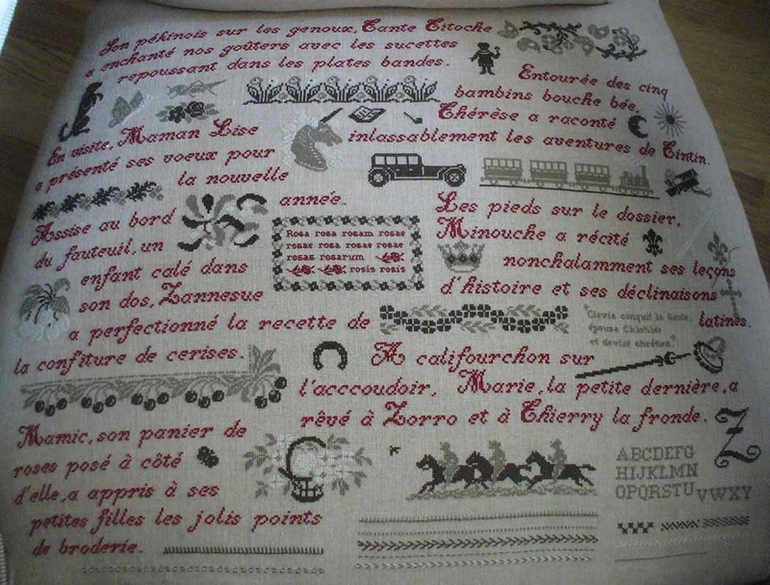 Son pékinois sur les genoux, Tante Titoche
a enchanté nos goûters avec les sucettes
repoussant dans les plates bandes.
Entourée des cinq
bambins bouche bée,
Thérèse a raconté
inlassablement les aventures de Tintin.
En visite, Maman Lise
a présenté ses voeux pour
la nouvelle
année.
Assise au bord
du fauteuil, un
enfant calé dans
son dos, Zannesue
a perfectionné la recette de
la confiture de cerises.
Rosa rosa rosam rosae
rosae rosa rosae rosae
rosas rosarum
rosis rosis
Les pieds sur le dossier,
Minouche a récité
nonchalamment ses leçons
d'histoire et ses déclinaisons
latines.
"Clovis conquit la Gaule,
épousa Chlotilde
et devint chrétien."
A califourchon sur
l'acccoudoir, Marie, la petite dernière, a
rêvé à Zorro et à Thierry la fronde.
Z
Mamic, son panier de
roses posé à côté
d'elle, a appris à ses
petites filles les jolis points
de broderie.
ABCDEFG
HIJKLMN
OPQRSTU VWXY